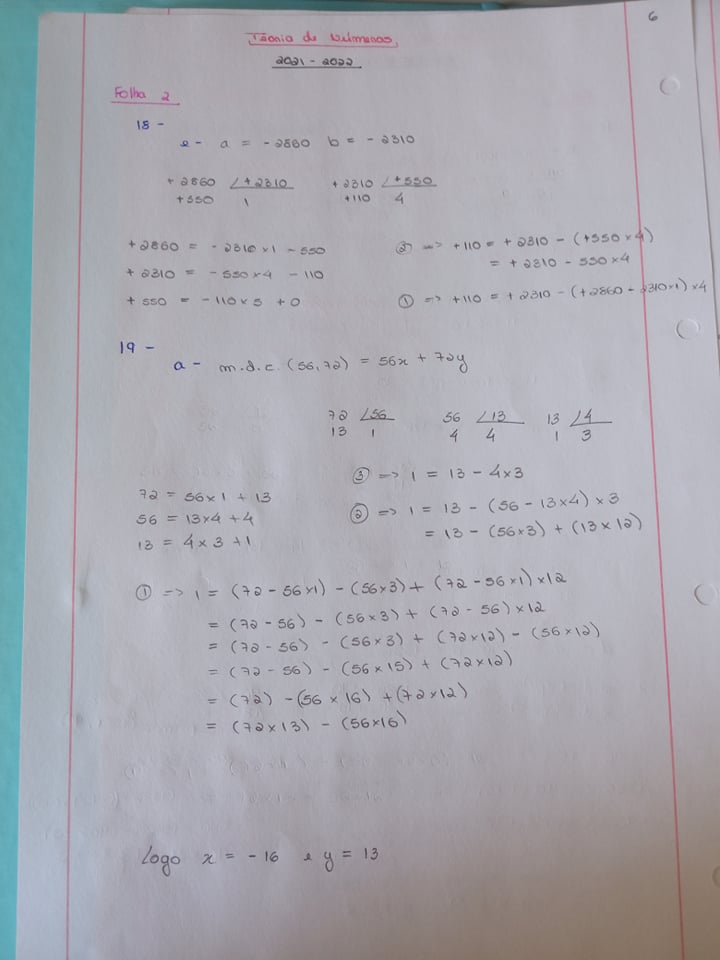 6
Teoria de Números
2021 - 2022
Folha 2
18 -
e - a = - 2860 b = - 2310
+ 2860 ∠+2310 + 2310 ∠+550
+550 1 +110 4
+2860 = - 2310 x 1 - 550
+ 2310 = - 550 x 4 - 110
+ 550 = - 110 x 5 + 0
② => +110 = + 2310 - (+550 x 4)
= + 2310 - 550 x 4
① => +110 = + 2310 - (+2860 - 2310 x 1) x 4
19 -
a - m.d.c. (56, 72) = 56x + 72y
72 ∠56 56 ∠13 13 ∠4
13 1 4 4 1 3
72 = 56 x 1 + 13
56 = 13 x 4 + 4
13 = 4 x 3 + 1
③ => 1 = 13 - 4 x 3
② => 1 = 13 - (56 - 13 x 4) x 3
= 13 - (56 x 3) + (13 x 12)
① => 1 = (72 - 56 x 1) - (56 x 3) + (72 - 56 x 1) x 12
= (72 - 56) - (56 x 3) + (72 - 56) x 12
= (72 - 56) - (56 x 3) + (72 x 12) - (56 x 12)
= (72 - 56) - (56 x 15) + (72 x 12)
= (72) - (56 x 16) + (72 x 12)
= (72 x 13) - (56 x 16)
Logo x = - 16 e y = 13